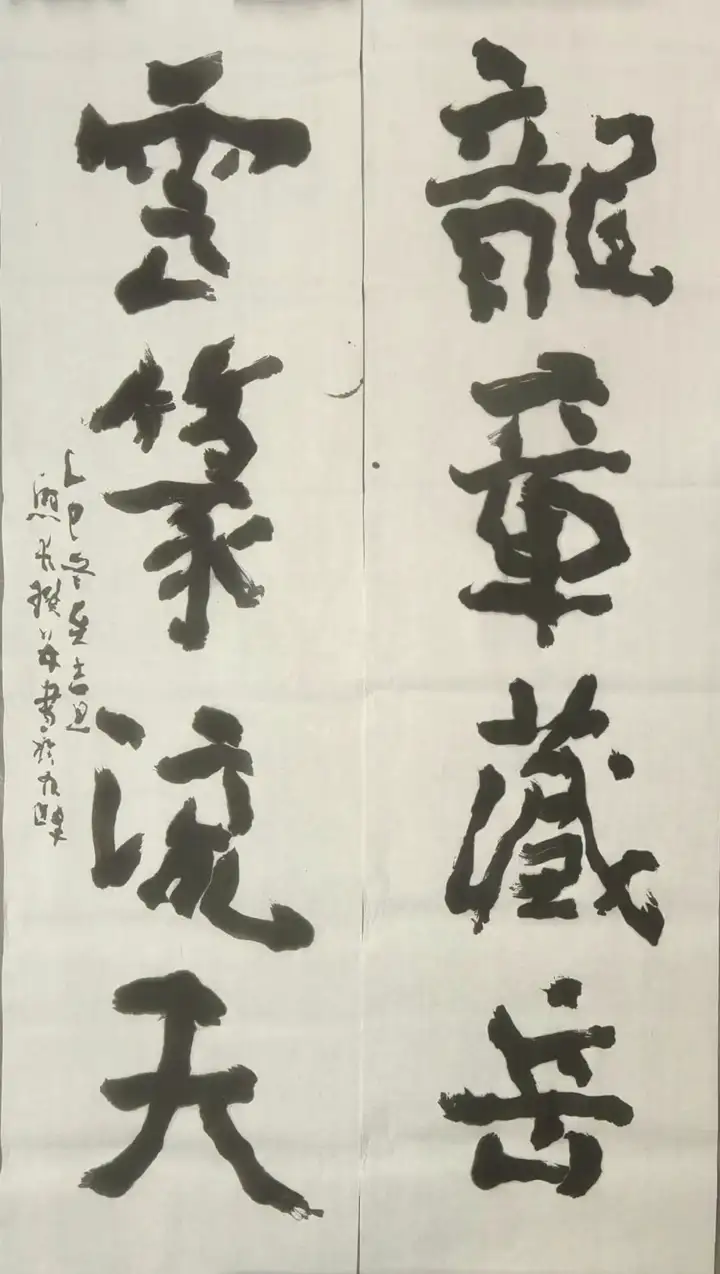 龍章藏岳
雲篆流天
乙巳冬至吉旦
撰并書於九